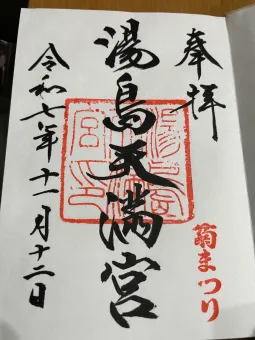 奉拝
菊まつり
湯島天満宮
令和七年十一月十二日